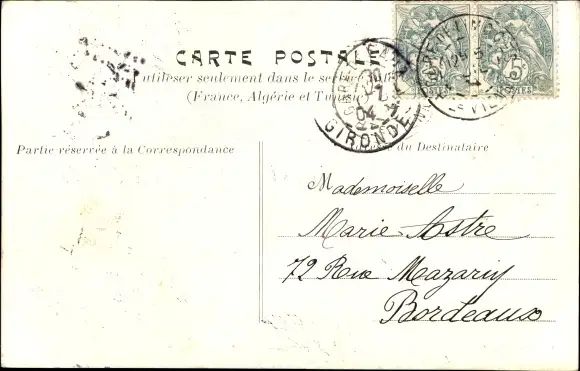 CARTE POSTALE
utiliser seulement dans le
(France, Algérie et Tunisie)
Partie réservée à la Correspondance
du Destinataire
GIRONDE
04
5
5
POSTES
POSTES
Mademoiselle
Marie Astre
72 Rue Mazarin
Bordeaux